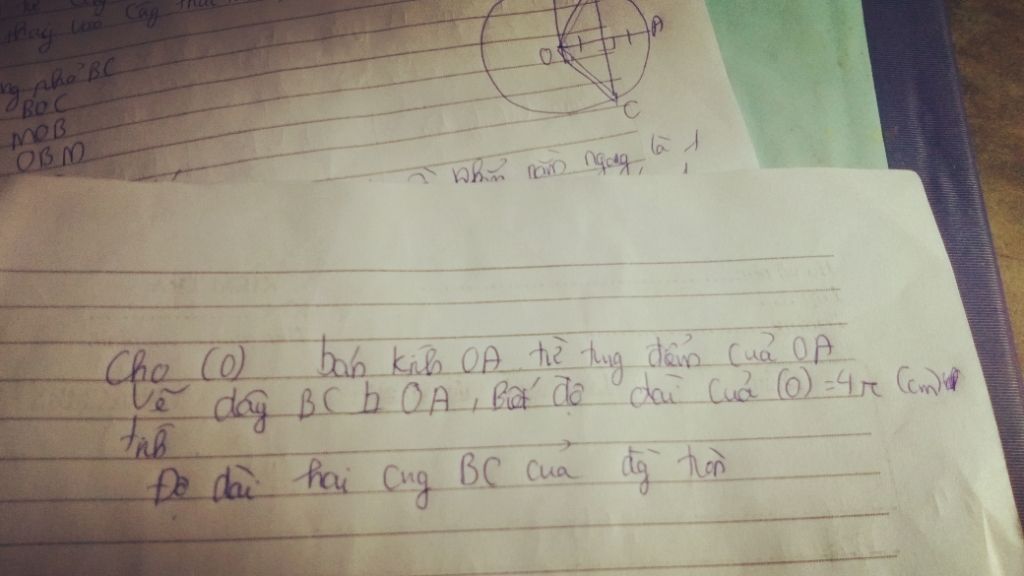 BC
BOC
MOB
OBM
O
A
C
nằm ngang, là 1
Cho (O) bán kính OA từ tug điểm của OA
Vẽ dây BC ⊥ OA, Biết độ dài của (O) = 4π (cm)
tính
Độ dài hai cug BC của đg tròn